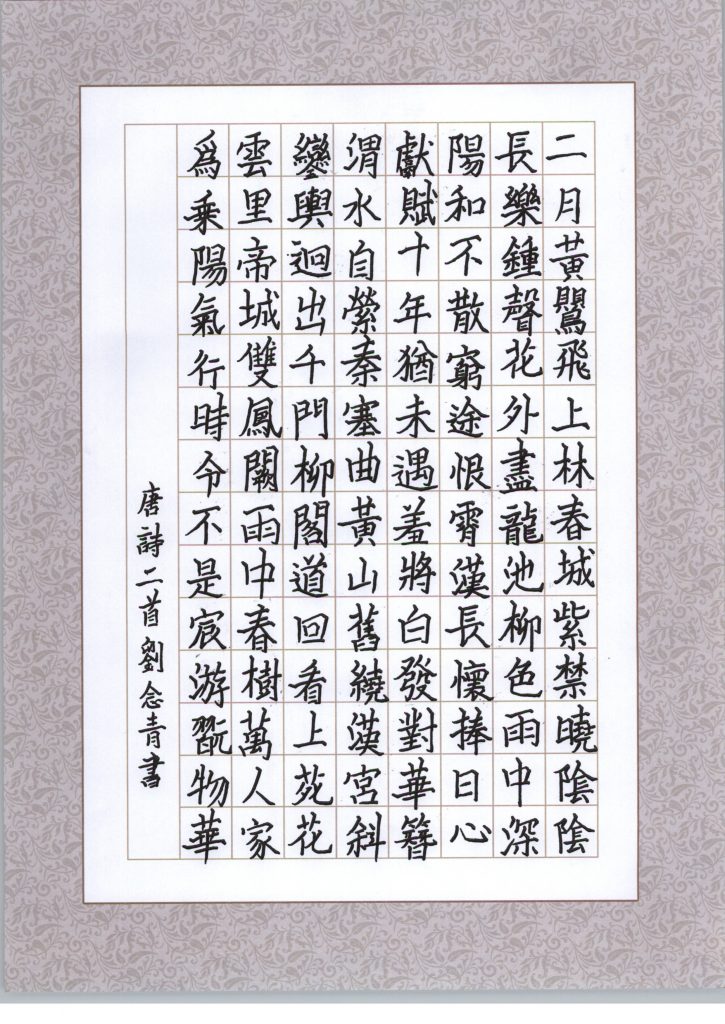 二月黃鸎飛上林春城紫禁曉陰陰
長樂鍾聲花外盡龍池柳色雨中深
陽和不散窮途恨霄漢長懷捧日心
獻賦十年猶未遇羞將白發對華簪
渭水自縈秦塞曲黃山舊繞漢宮斜
鑾輿迴出千門柳閣道回看上苑花
雲里帝城雙鳳闕雨中春樹萬人家
爲乘陽氣行時令不是宸游翫物華
唐詩二首劉念青書